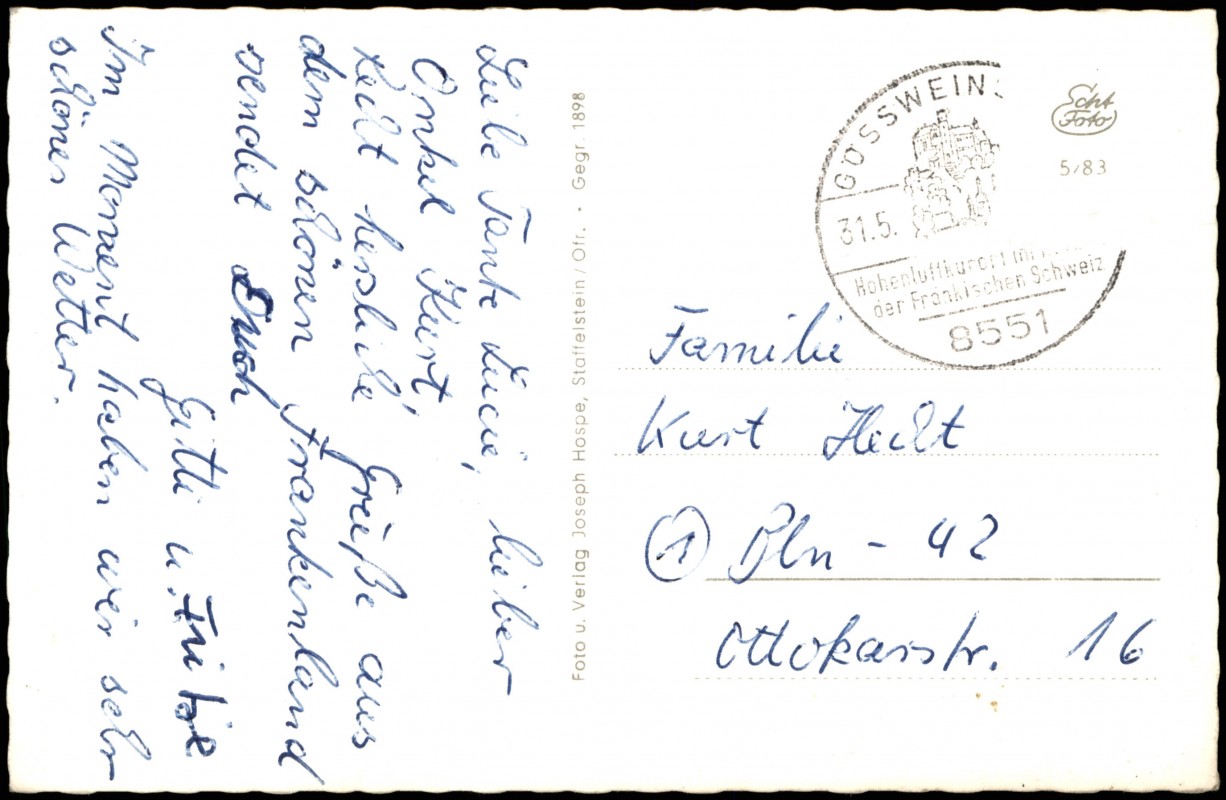 Liebe Tante Lucie, lieber
Onkel Kurt,
recht herzliche Grüße aus
dem schönen Frankenland
sendet Euch
Gitti u.
Im Moment haben wir sehr
schönes Wetter.
Foto u. Verlag Joseph Hospe, Staffelstein/Ofr. • Gegr. 1898
GÖSSWEIN
31.5.
Höhenluftkurort im
der Fränkischen Schweiz
8551
Echt
Foto
5/83
Familie
Kurt Hecht
1 Bln - 42
Ottokarstr. 16